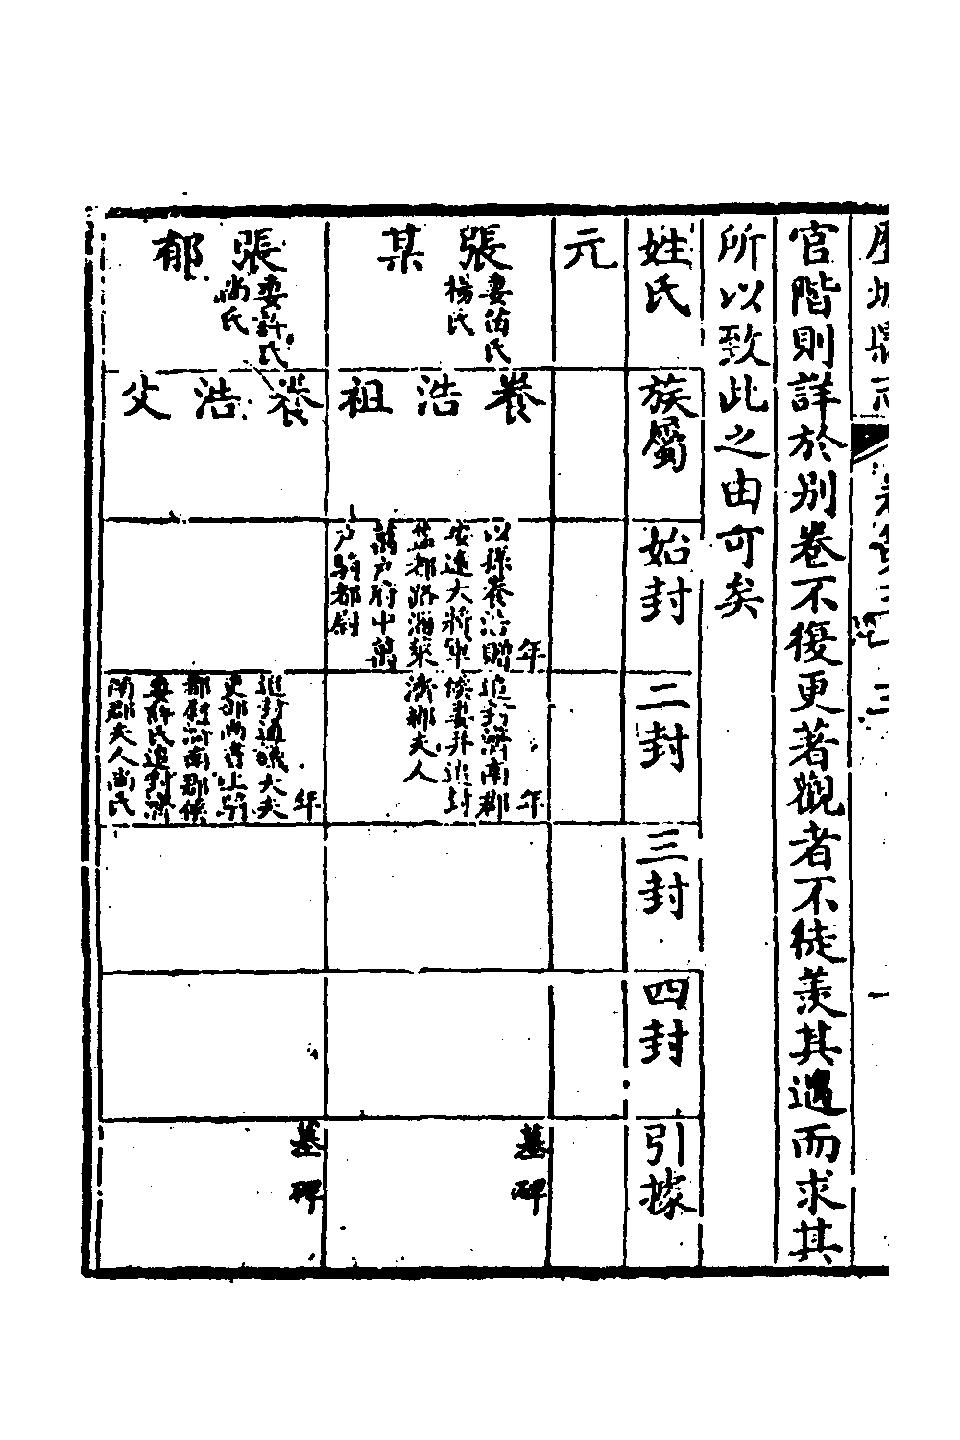 官階則詳於別卷不復更著觀者不徒羨其遇而求其
所以致此之由可矣
姓氏
族屬
始封
二封
三封
四封
引據
元
張某
妻
氏
楊氏
養浩祖
年
以孫養浩贈
安遠大將軍
益都路淄萊
萬戶府中萬
戶騎都尉
年
追封濟南郡
侯妻並追封
濟郡夫人
墓碑
張郁
妻許氏
尚氏
養浩父
年
追封通議大夫
吏部尚書上騎
都尉濟南郡侯
妻許氏追封濟
南郡夫人尚氏
墓碑